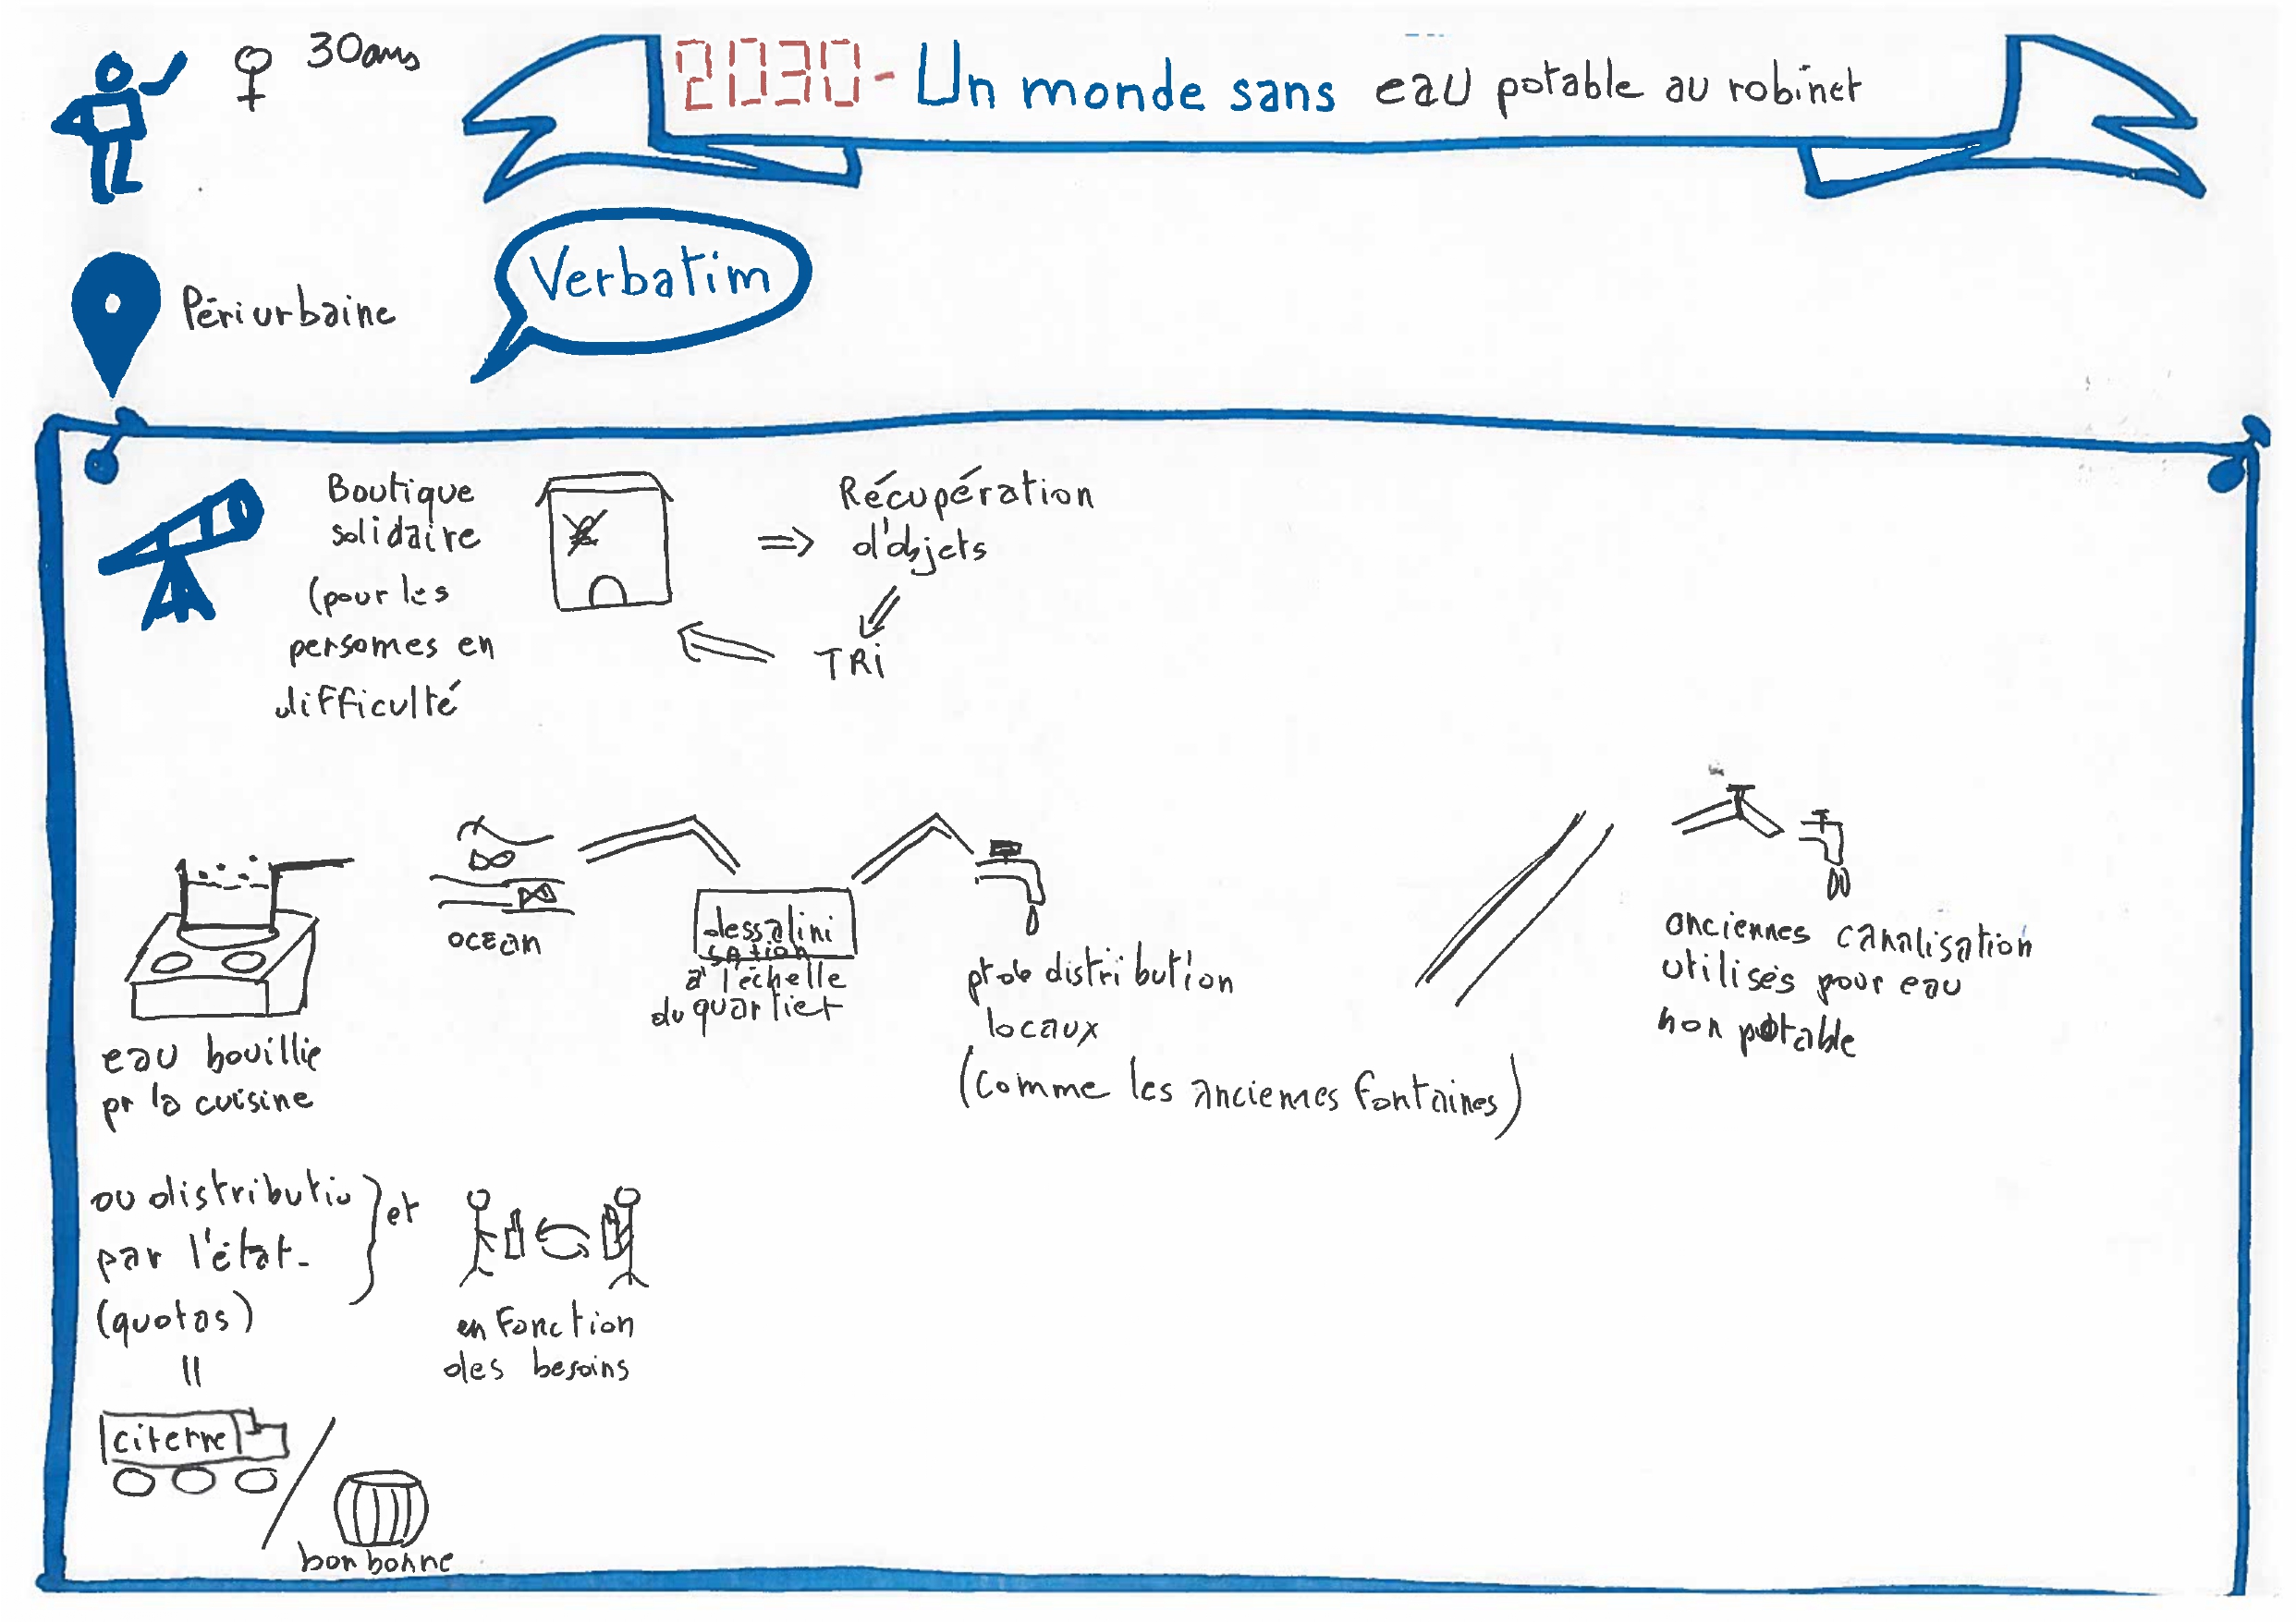 30ans
2030- Un monde sans eau potable au robinet
Périurbaine
Verbatim
Boutique
solidaire
(pour les
personnes en
difficulté
Récupération
d'objets
TRi
eau bouillie
pr la cuisine
ocean
dessalini
sation
à l'échelle
du quartier
pt de distribution
locaux
(comme les anciennes fontaines)
anciennes canalisation
utilisés pour eau
non potable
ou distributio
par l'état-
(quotas)
et
en fonction
des besoins
citerne
bonbonne